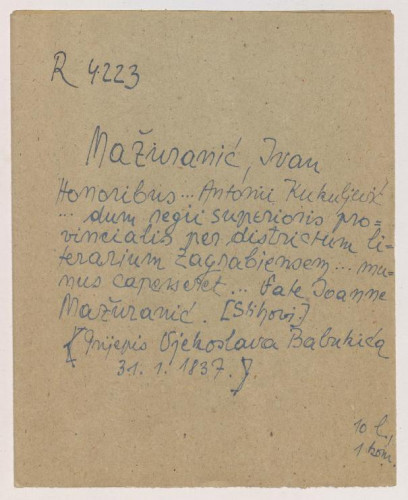 R 4223
Mažuranić, Ivan
Honoribus... Antonii Kukuljević
... dum regii superioris pro=
vincialis per districtum li=
terarium Zagrabiensem... mu=
nus capesseret... Joanne
Mažuranić. [Stihovi.]
{Prijepis Vjekoslava Babukića
31. 1. 1837.}.
10 l.,
1 kom.